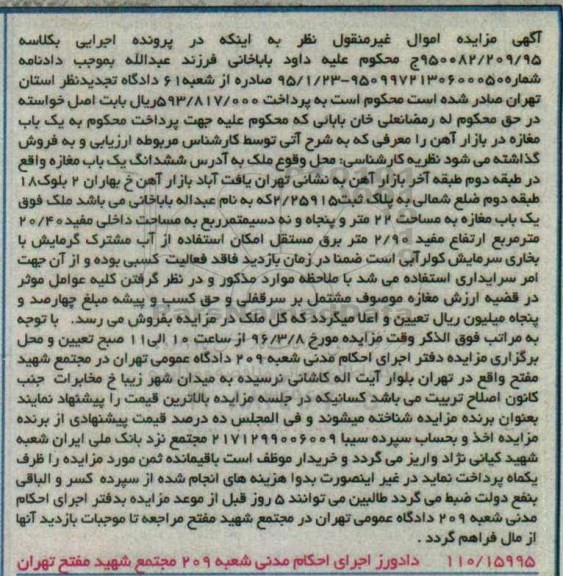 آگهی مزایده اموال غیرمنقول نظر به اینکه در پرونده اجرایی بکلاسه
۹۵۰۰۸۲/۲۰۹/۹۵ج محکوم علیه داود باباخانی فرزند عبدالله بموجب دادنامه
شماره۹۵۰۹۹۷۲۱۳۰۶۰۰۰۵۰-۹۵/۱/۲۳ صادره از شعبه۶۱ دادگاه تجدیدنظر استان
تهران صادر شده است محکوم است به پرداخت ۵۹۳/۸۱۷/۰۰۰ریال بابت اصل خواسته
در حق محکوم له رمضانعلی خان بابائی که محکوم علیه جهت پرداخت محکوم به یک باب
مغازه در بازار آهن را معرفی که به شرح آتی توسط کارشناس مربوطه ارزیابی و به فروش
گذاشته می شود نظریه کارشناسی: محل وقوع ملک به آدرس ششدانگ یک باب مغازه واقع
در طبقه دوم طبقه آخر بازار آهن به نشانی تهران یافت آباد بازار آهن خ بهاران ۲ بلوک۱۸
طبقه دوم ضلع شمالی به پلاک ثبت۲/۲۵۹۱۵که به نام عبداله باباخانی می باشد ملک فوق
یک باب مغازه به مساحت ۲۲ متر و پنجاه و نه دسیمترربع به مساحت داخلی مفید۲۰/۴۰
مترمربع ارتفاع مفید ۲/۹۰ متر برق مستقل امکان استفاده از آب مشترک گرمایش با
بخاری سرمایش کولرآبی است ضمنا در زمان بازدید فاقد فعالیت کسبی بوده و از آن جهت
امر سرایداری استفاده می شد با ملاحظه موارد مذکور و در نظر گرفتن کلیه عوامل موثر
در قضیه ارزش مغازه موصوف مشتمل بر سرقفلی و حق کسب و پیشه مبلغ چهارصد و
پنجاه میلیون ریال تعیین و اعلا میگردد که کل ملک در مزایده بفروش می رسد. با توجه
به مراتب فوق الذکر وقت مزایده مورخ ۹۶/۳/۸ از ساعت ۱۰ الی۱۱ صبح تعیین و محل
برگزاری مزایده دفتر اجرای احکام مدنی شعبه ۲۰۹ دادگاه عمومی تهران در مجتمع شهید
مفتح واقع در تهران بلوار آیت اله کاشانی نرسیده به میدان شهر زیبا خ مخابرات جنب
کانون اصلاح تربیت می باشد کسانیکه در جلسه مزایده بالاترین قیمت را پیشنهاد نمایند
بعنوان برنده مزایده شناخته میشوند و فی المجلس ده درصد قیمت پیشنهادی از برنده
مزایده اخذ و بحساب سپرده سیبا ۲۱۷۱۲۹۹۰۰۶۰۰۹ مجتمع نزد بانک ملی ایران شعبه
شهید کیانی نژاد واریز می گردد و خریدار موظف است باقیمانده ثمن مورد مزایده را ظرف
یکماه پرداخت نماید در غیر اینصورت بدوا هزینه های انجام شده از سپرده کسر و الباقی
بنفع دولت ضبط می گردد طالبین می توانند ۵ روز قبل از موعد مزایده بدفتر اجرای احکام
مدنی شعبه ۲۰۹ دادگاه عمومی تهران در مجتمع شهید مفتح مراجعه تا موجبات بازدید آنها
از مال فراهم گردد .
۱۱۰/۱۵۹۹۵ دادورز اجرای احکام مدنی شعبه ۲۰۹ مجتمع شهید مفتح تهران